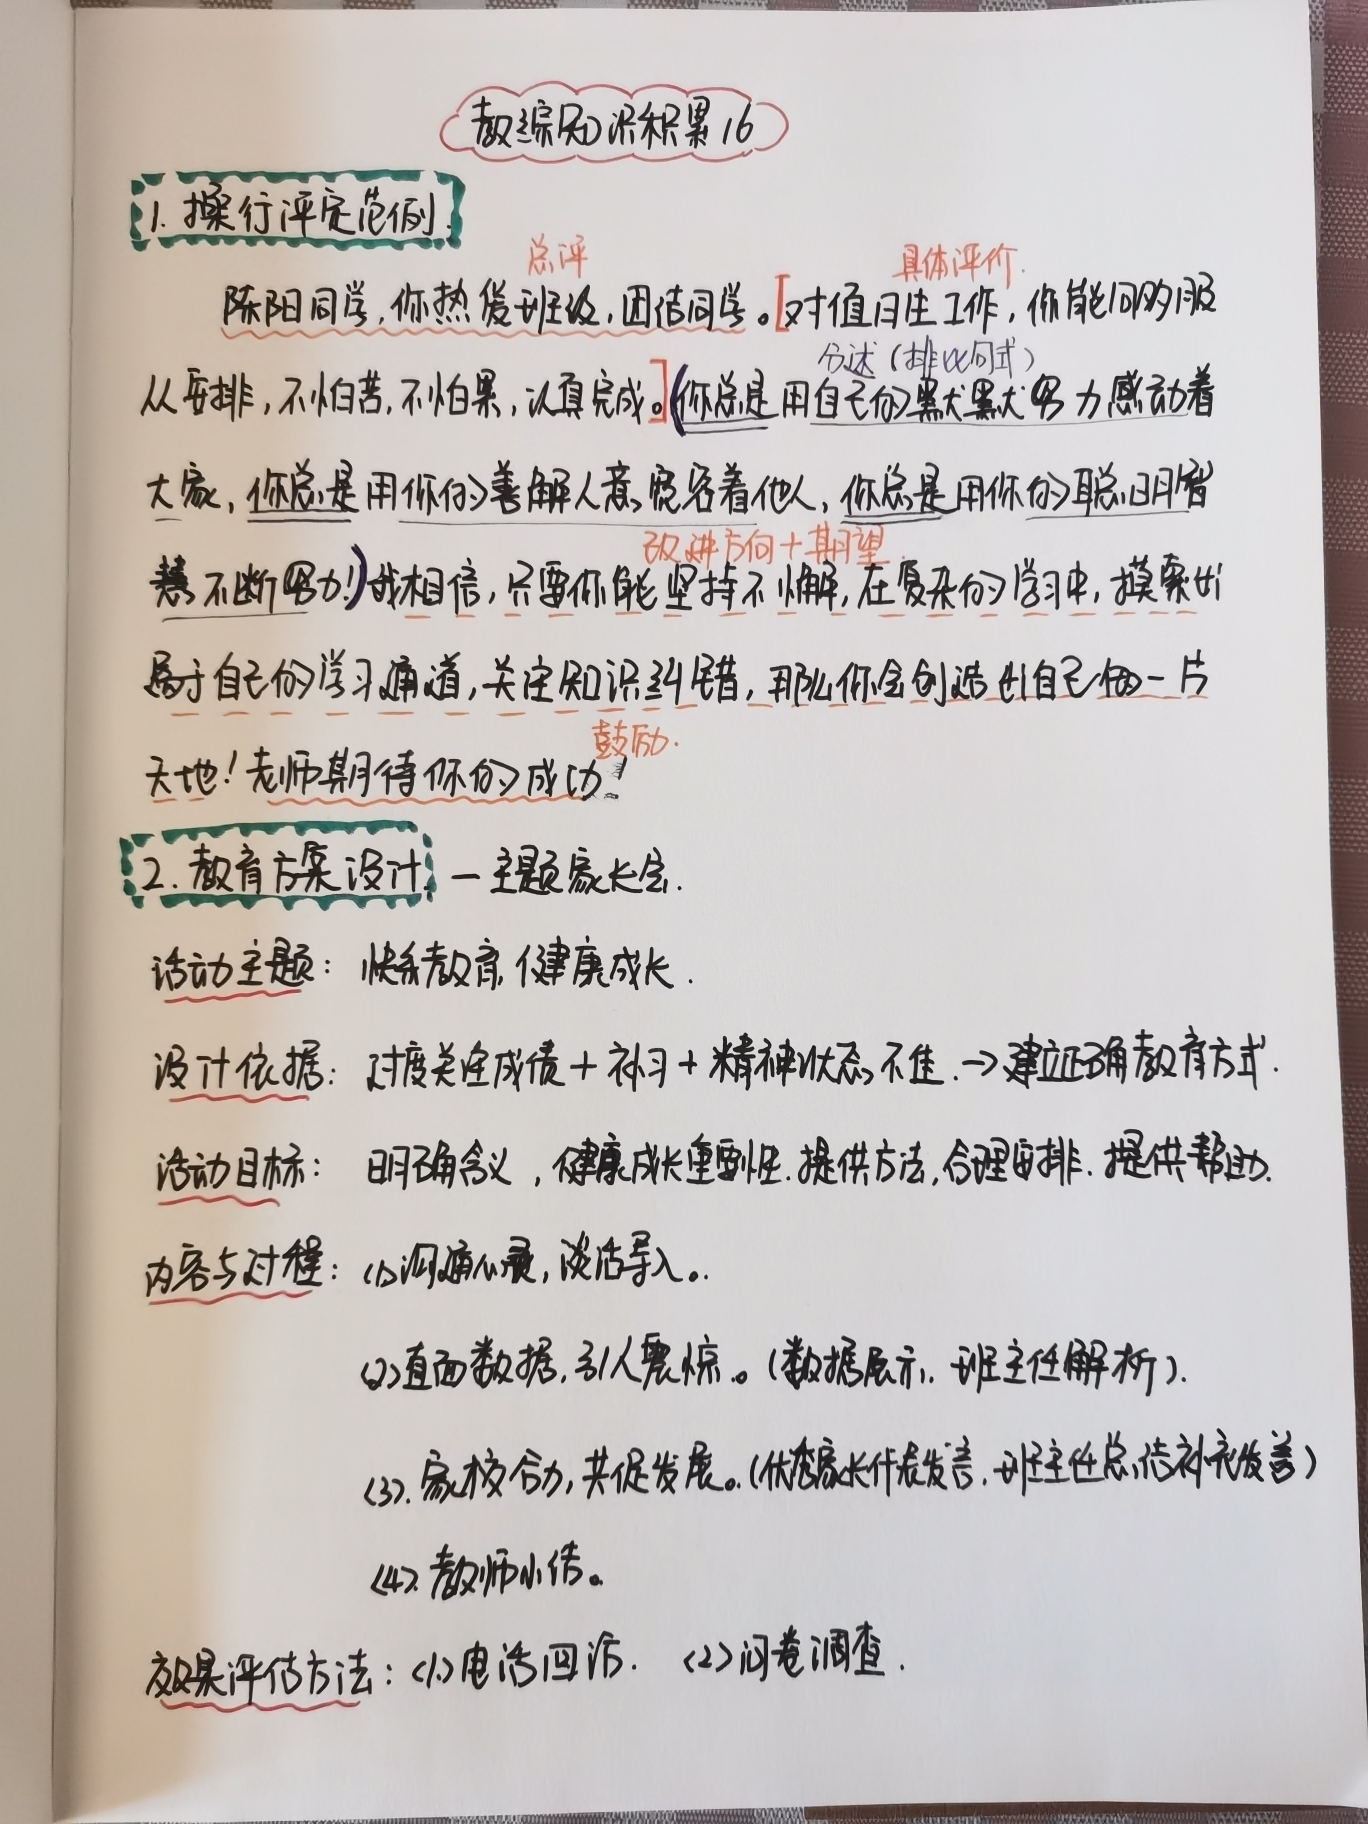 教综知识积累16
1. 操行评定范例
总评
具体评价.
陈阳同学，你热爱班级，团结同学。[对值日生工作，你能同够服
分述（排比句式）
从安排，不怕苦，不怕累，认真完成。]（你总是用自己的默默努力感动着
大家，你总是用你的善解人意宽容着他人，你总是用你的聪明智
改进方向＋期望
慧不断努力！）我相信，只要你能坚持不懈，在复杂的学习中，摸索出
属于自己的学习通道，关注知识纠错，那么你会创造出自己的一片
鼓励.
天地！老师期待你的成功！
2. 教育方案设计 — 主题家长会.
活动主题： 快乐教育，健康成长.
设计依据： 过度关注成绩＋补习＋精神状态不佳.→建立正确教育方式.
活动目标： 明确含义，健康成长重要性.提供方法，合理安排.提供帮助.
内容与过程：(1)沟通心灵，谈话导入。
(2)直面数据，引人震惊。（数据展示，班主任解析）.
(3).家校合力，共促发展。（优秀家长代表发言，班主任总结补充发言）
(4).教师小结。
效果评估方法：(1)电话回访. (2)问卷调查.